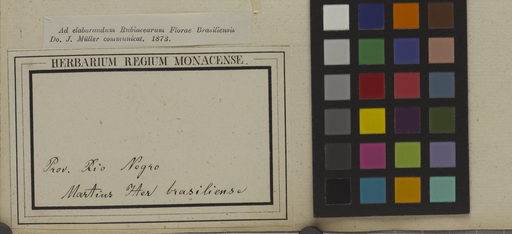 Ad elaborandum Rubiacearum Florae Brasiliensis
Do. J. Müller communicat. 1873.
HERBARIUM REGIUM MONACENSE.
Prov. Rio Negro
Martius Iter brasiliense